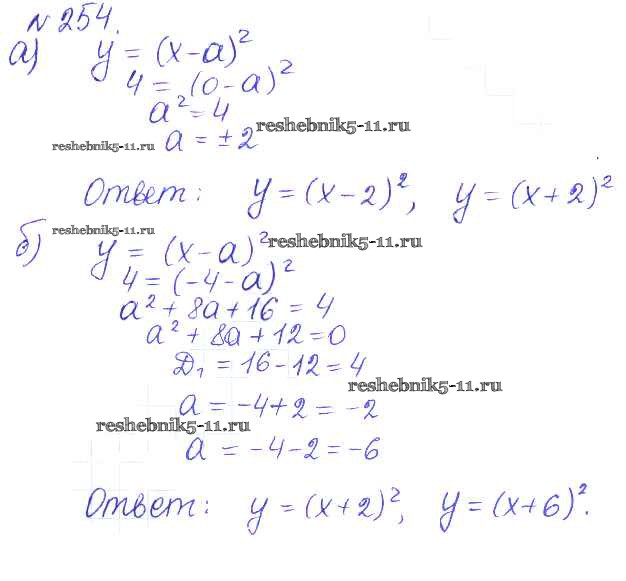 № 254.
а) y = (x-a)²
4 = (0-a)²
a² = 4
reshebnik5-11.ru
reshebnik5-11.ru a = ±2
Ответ: y = (x-2)², y = (x+2)²
reshebnik5-11.ru
б) y = (x-a)² reshebnik5-11.ru
4 = (-4-a)²
a² + 8a + 16 = 4
a² + 8a + 12 = 0
D₁ = 16-12 = 4
reshebnik5-11.ru
a = -4+2 = -2
reshebnik5-11.ru
a = -4-2 = -6
Ответ: y = (x+2)², y = (x+6)².